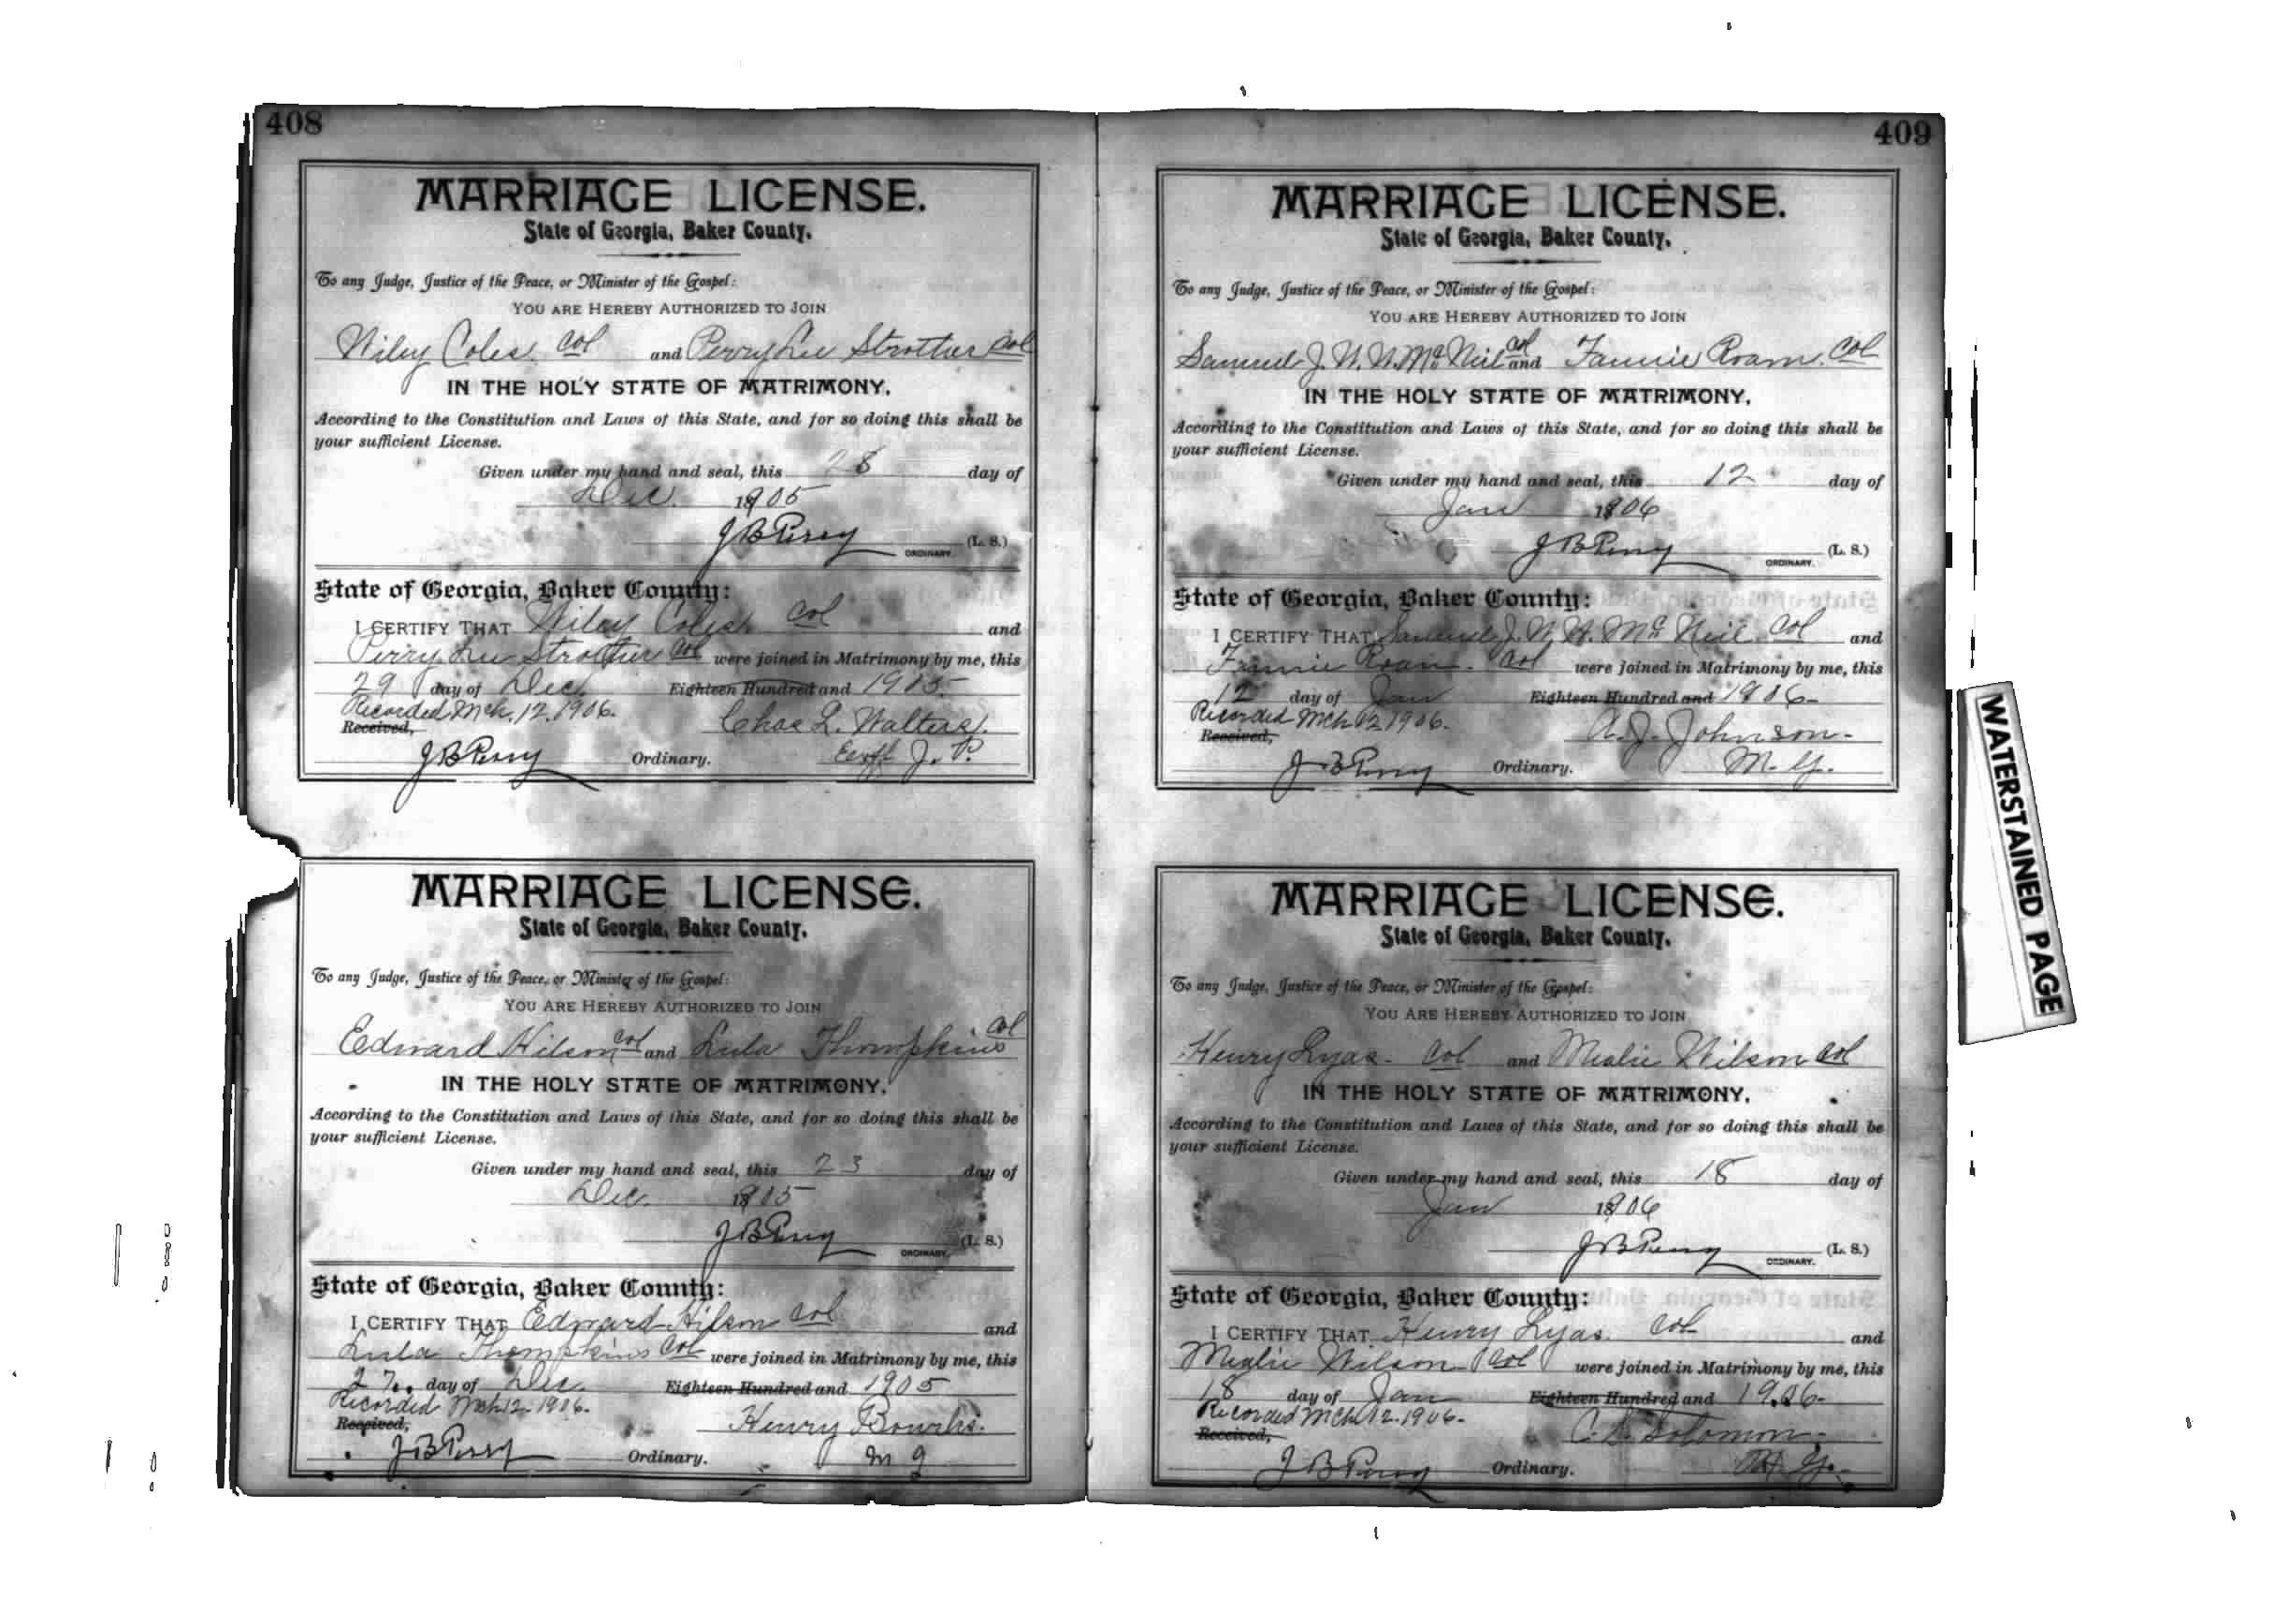 408
MARRIAGE LICENSE.
State of Georgia, Baker County.
To any Judge, Justice of the Peace, or Minister of the Gospel:
YOU ARE HEREBY AUTHORIZED TO JOIN
Wiley Coles col and Perry Lee Strother col
IN THE HOLY STATE OF MATRIMONY,
According to the Constitution and Laws of this State, and for so doing this shall be
your sufficient License.
Given under my hand and seal, this 28 day of
Dec. 1905
J B Perry (L. S.)
ORDINARY.
State of Georgia, Baker County:
I CERTIFY THAT Wiley Coles col and
Perry Lee Strother col were joined in Matrimony by me, this
29 day of Dec. Eighteen Hundred and 1905
Recorded Mch. 12. 1906.
Received, Chas L. Walters.
J B Perry Ordinary. J. P.
MARRIAGE LICENSE.
State of Georgia, Baker County.
To any Judge, Justice of the Peace, or Minister of the Gospel:
YOU ARE HEREBY AUTHORIZED TO JOIN
Edward Hilson col and Lula Thompkins col
IN THE HOLY STATE OF MATRIMONY,
According to the Constitution and Laws of this State, and for so doing this shall be
your sufficient License.
Given under my hand and seal, this 23 day of
Dec. 1905
J B Perry (L. S.)
ORDINARY.
State of Georgia, Baker County:
I CERTIFY THAT Edward Hilson col and
Lula Thompkins col were joined in Matrimony by me, this
27. day of Dec. Eighteen Hundred and 1905
Recorded Mch 12. 1906.
Received, Henry
J B Perry Ordinary. M G
409
MARRIAGE LICENSE.
State of Georgia, Baker County.
To any Judge, Justice of the Peace, or Minister of the Gospel:
YOU ARE HEREBY AUTHORIZED TO JOIN
Samuel J. W. W. McNeil col and Fannie Roam. col
IN THE HOLY STATE OF MATRIMONY,
According to the Constitution and Laws of this State, and for so doing this shall be
your sufficient License.
Given under my hand and seal, this 12 day of
Jan 1906
J B Perry (L. S.)
ORDINARY.
State of Georgia, Baker County:
I CERTIFY THAT Samuel J. W. W. McNeil col and
Fannie Roam. col were joined in Matrimony by me, this
12 day of Jan Eighteen Hundred and 1906
Recorded Mch 12 1906.
Received, A. J. Johnson.
J B Perry Ordinary. M. G.
MARRIAGE LICENSE.
State of Georgia, Baker County.
To any Judge, Justice of the Peace, or Minister of the Gospel:
YOU ARE HEREBY AUTHORIZED TO JOIN
Henry Lyas. col and Mealie Wilson col
IN THE HOLY STATE OF MATRIMONY,
According to the Constitution and Laws of this State, and for so doing this shall be
your sufficient License.
Given under my hand and seal, this 18 day of
Jan 1906
J B Perry (L. S.)
ORDINARY.
State of Georgia, Baker County:
I CERTIFY THAT Henry Lyas. col and
Mealie Wilson col were joined in Matrimony by me, this
18 day of Jan Eighteen Hundred and 1906
Recorded Mch 12. 1906.
Received, C. D. Solomon.
J B Perry Ordinary. M. G.
WATERSTAINED PAGE